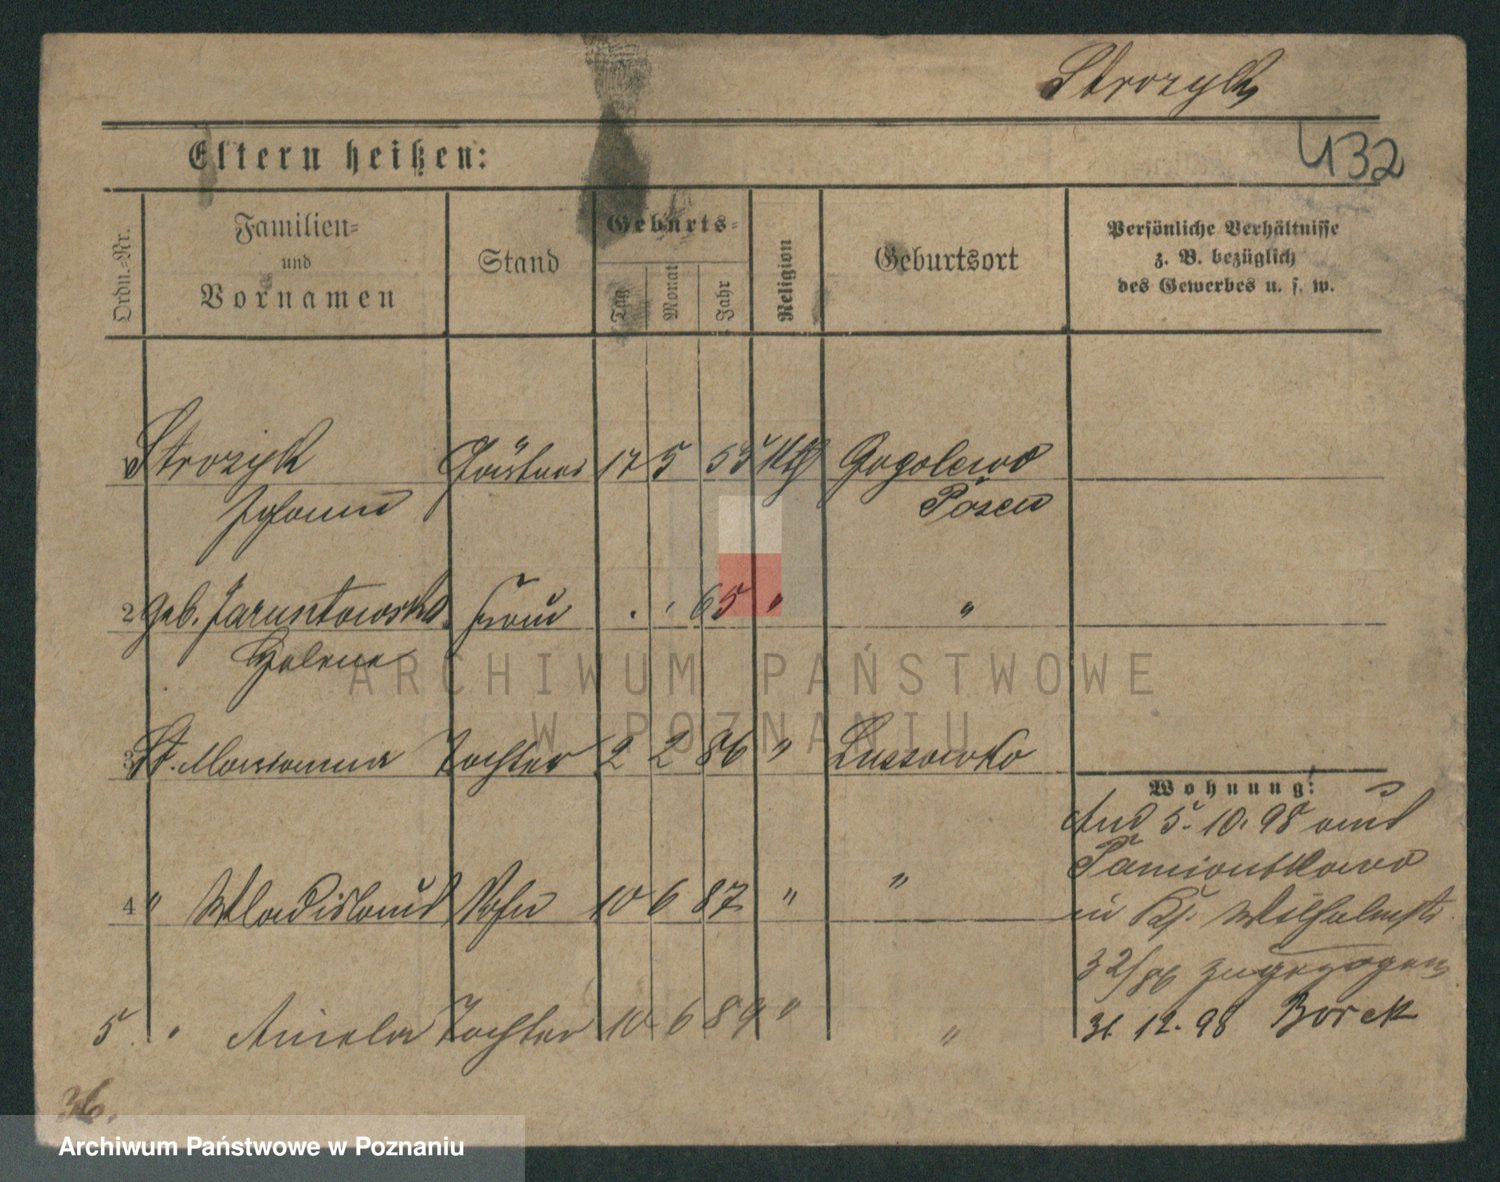 Strozyk
432
Eltern heißen:
Ordn.-Nr.
Familien-
und
Vornamen
Stand
Geburts-
Tag
Monat
Jahr
Religion
Geburtsort
Persönliche Verhältnisse
z. B. bezüglich
des Gewerbes u. s. w.
1 Strozyk 17 5 53 kth Gogolewo
Johann Posen
2 geb. Jaruntowska Frau . , 65 " "
Helene
ARCHIWUM PAŃSTWOWE
W POZNANIU
3 St. Marianna Tochter 2 2 86 " Lussowko
Wohnung:
5. 10. 98 aus
4 " Wladislaus Sohn 10 6 87 " "
in Wilhelmstr
32/86 zugezogen
5 " Aniela Tochter 10 6 89 " "
31 12. 98 Borek
36.
Archiwum Państwowe w Poznaniu